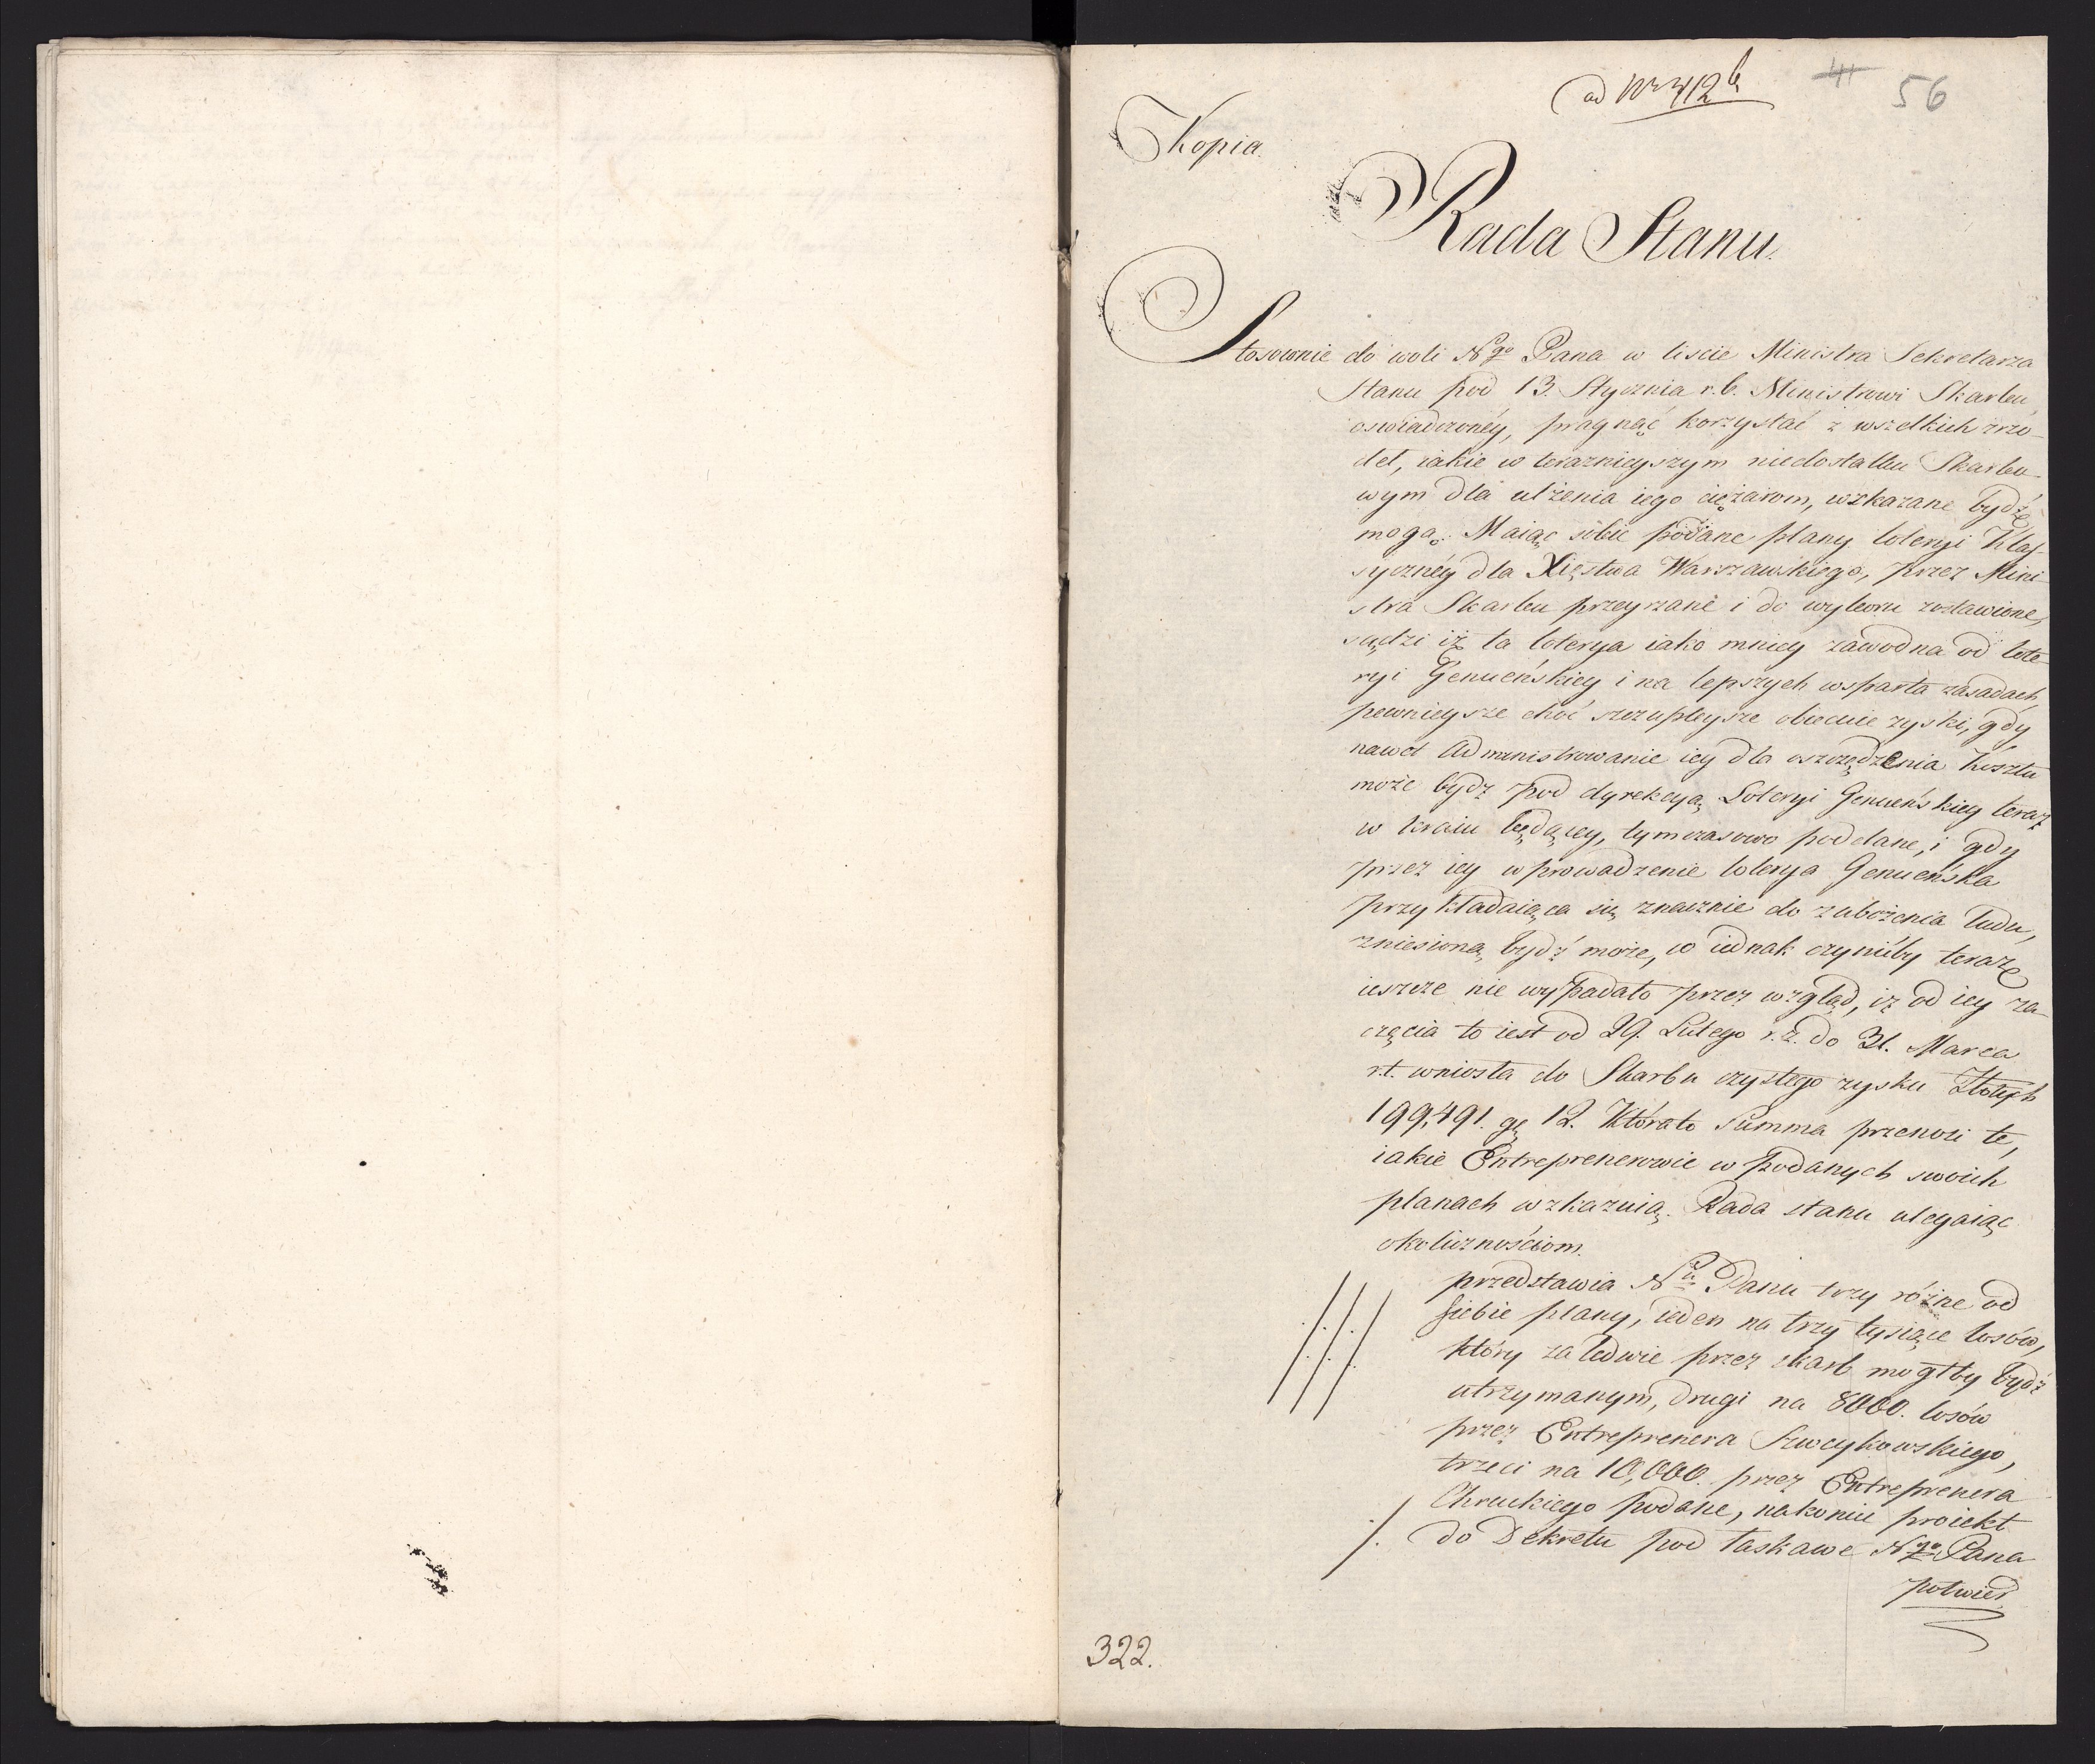 ad Nr 412 b
41 56
Kopia.
Rada Stanu.
Stosownie do woli N&go Pana w liscie Ministra Sekretarza
Stanu pod 13. Stycznia r.b. Ministrowi Skarbu
oswiadczonéy, pragnąć korzystać z wszelkich zrzo-
deł, iakie w teraznieyszym niedostatku Skarbo-
wym dla ulżenia iego ciężarom, wskazane bydź
mogą. Maiąc sobie podane plany loteryi Klas-
syczney dla Xięstwa Warszawskiego, przez Mini-
stra Skarbu przeyrzane i do wyboru zostawione,
sądzi iż ta loterya iako mniey zawodna od lote-
ryi Genueńskiey i na lepszych wsparta zasadach
pewnieysze choć szczupleysze obiecuie zyski, gdy
nawet administrowanie iey dla oszczędzenia kosztu
może bydź pod dyrekcyą Loteryi Genueńskiey teraz
w kraiu będącey, tymczasowo poddane, i gdy
przez iey wprowadzenie loterya Genueńska
przykładaiąca się znacznie do zubożenia ludu,
zniesioną bydź może, co iednak czynićby teraz
ieszcze nie wypadało przez wzgląd, iż od iey za-
częcia to iest od 29. Lutego r.z. do 31. Marca
r.t. wniosła do Skarbu czystego zysku Złotych
199,491. gr 12. Którato Summa przenosi te,
iakie Entreprenerowie w podanych swoich
planach wzkazuią. Rada stanu ulegaiąc
okolicznościom.
przedstawia N&u Panu trzy różne od
siebie plany, ieden na trzy tysiące losów,
który zaledwie przez skarb mogłby bydź
utrzymanym, drugi na 8000. losów
przez Entreprenera Szweykowskiego,
trzeci na 10,000. przez Entreprenera
Chruckiego podane, nakoniec proiekt
do Dekretu pod łaskawe N&go Pana
potwier
322.